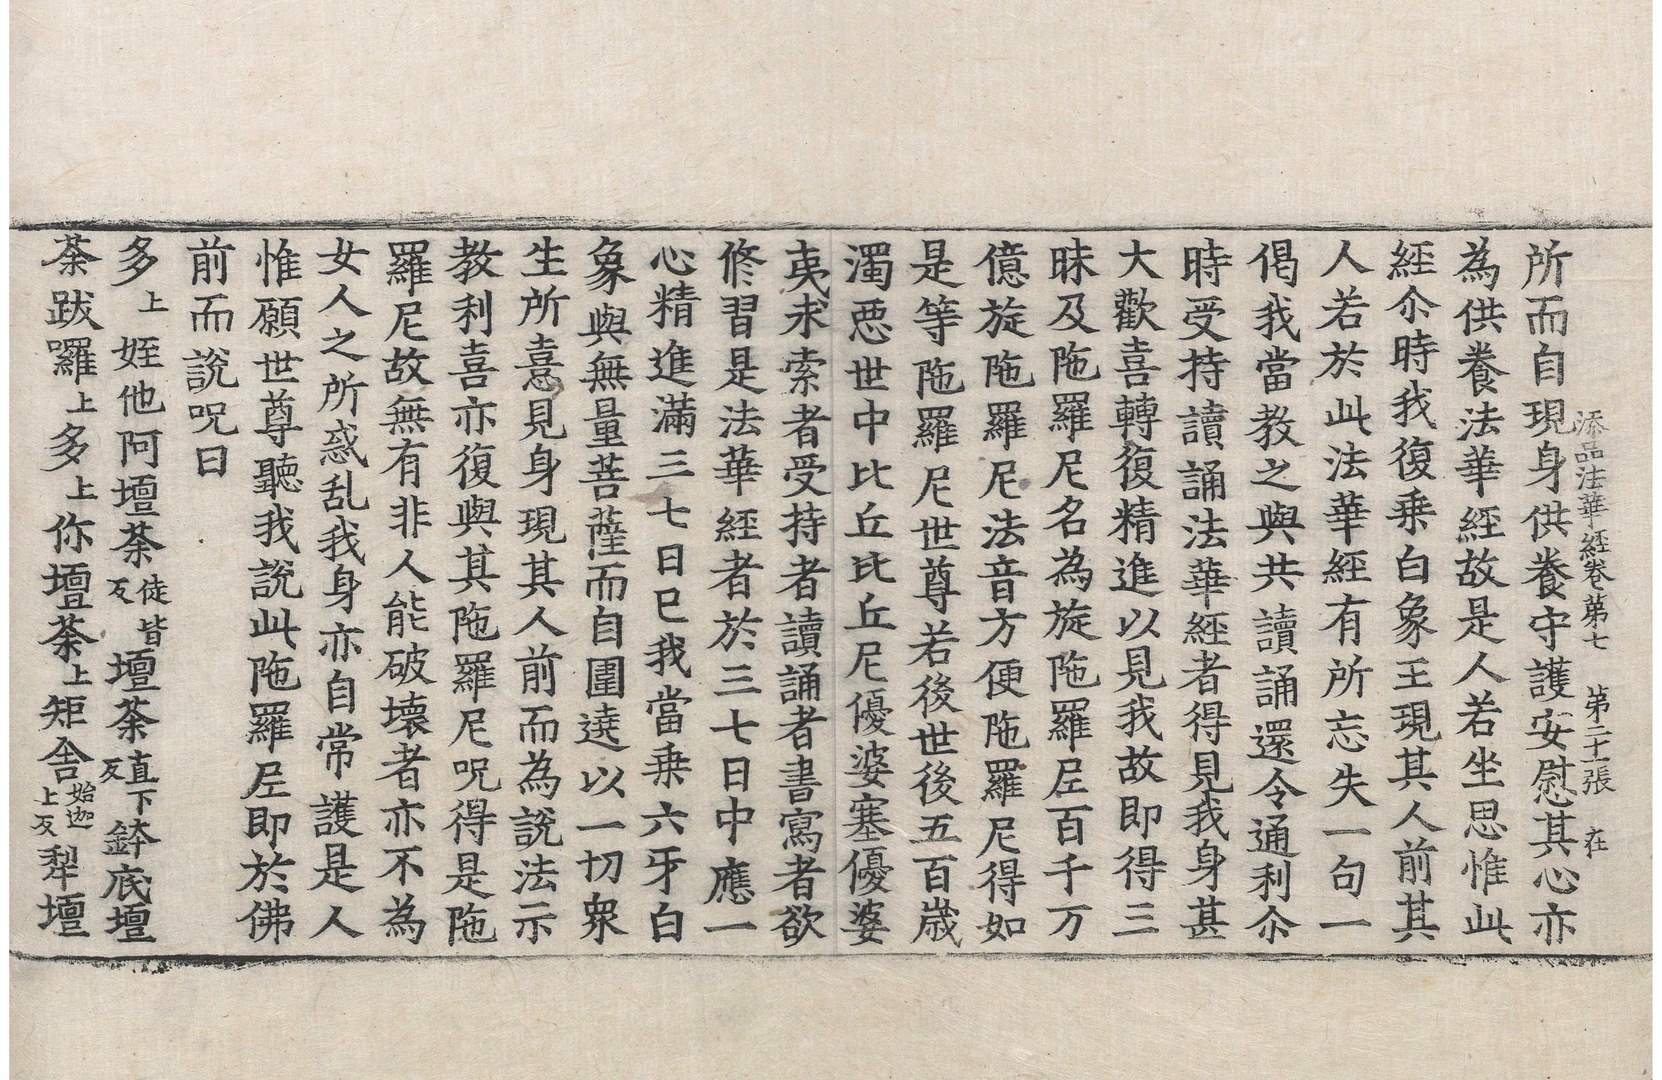 添品法華經卷第七　第二十張　在
所而自現身供養守護安慰其心亦
為供養法華經故是人若坐思惟此
經尒時我復乗白象王現其人前其
人若於此法華經有所忘失一句一
偈我當教之與共讀誦還令通利尒
時受持讀誦法華經者得見我身甚
大歡喜轉復精進以見我故即得三
昧及陁羅尼名為旋陁羅尼百千万
億旋陁羅尼法音方便陁羅尼得如
是等陁羅尼世尊若後世後五百歳
濁惡世中比丘比丘尼優婆塞優婆
夷求索者受持者讀誦者書寫者欲
修習是法華經者於三七日中應一
心精進滿三七日已我當乗六牙白
象與無量菩薩而自圍遶以一切衆
生所憙見身現其人前而為說法示
教利喜亦復與其陁羅尼呪得是陁
羅尼故無有非人能破壞者亦不為
女人之所惑乱我身亦自常護是人
惟願世尊聽我說此陁羅尼即於佛
前而說呪曰
多上姪他阿壇荼徒皆反壇荼直下反鉢底壇
荼跋囉上多上你壇荼上矩舍始迦上反犁壇